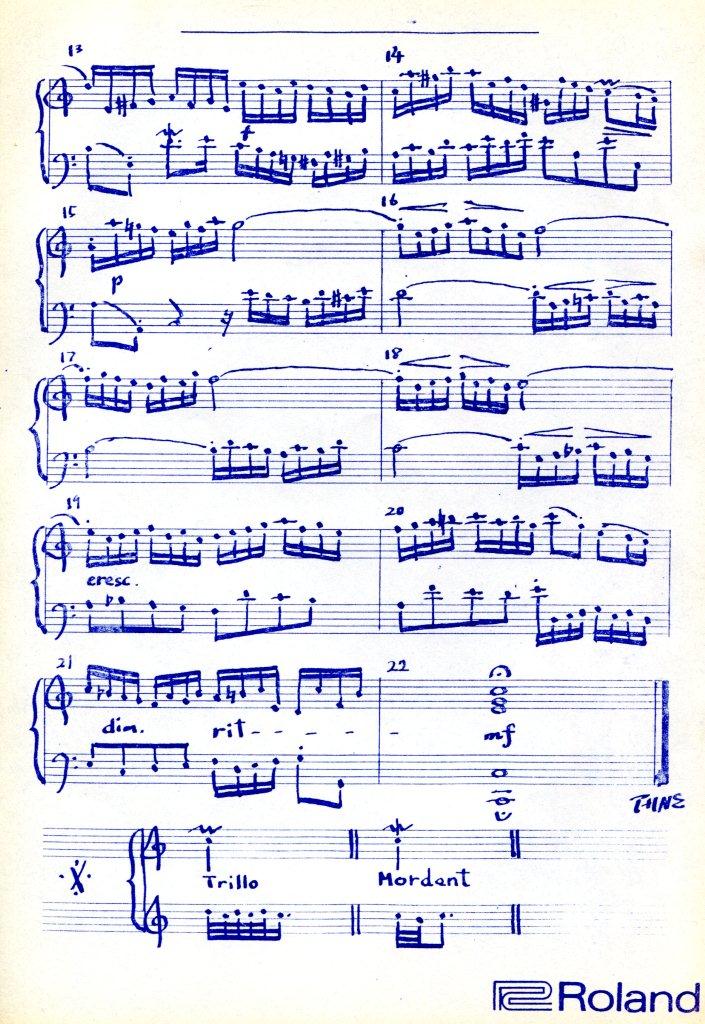 13 14
f
15 16
p
17 18
19 20
cresc.
21 22
dim. rit - - - - - -
mf
FINE
Trillo Mordent
Roland